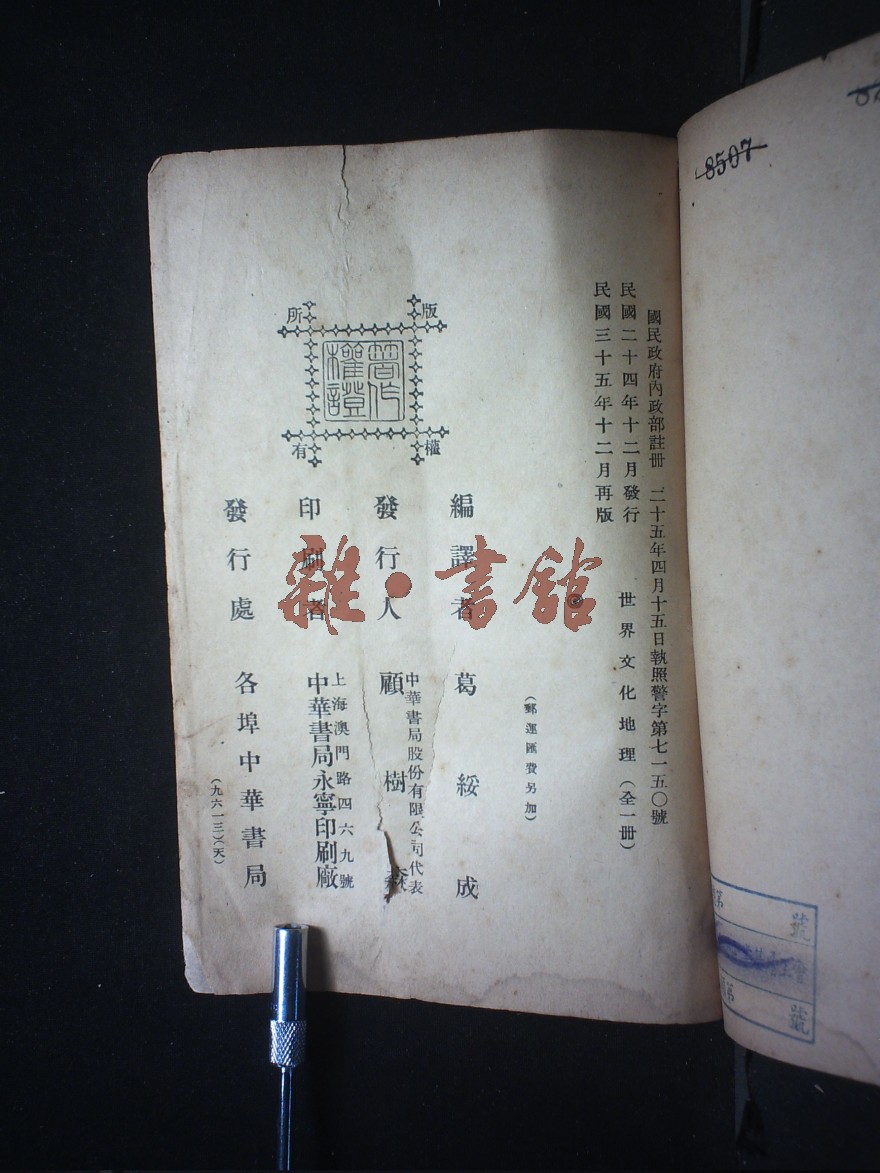 國民政府內政部註冊 二十五年四月十五日執照警字第七一五〇號
民國二十四年十二月發行
民國三十五年十二月再版
世界文化地理(全一冊)
(郵運匯費另加)
編譯者 葛綏成
發行人 中華書局股份有限公司代表
顧樹森
印刷者 上海澳門路四六九號
中華書局永寧印刷廠
發行處 各埠中華書局
(九六一三)(天)
版權所有
著作權證
雜·書館
8507
號
號